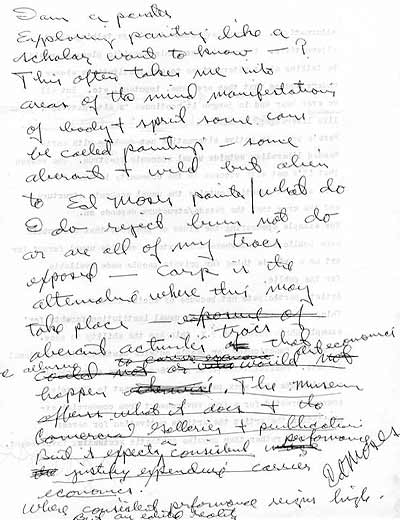 I am a painter
Exploring painting like a
scholar want to know — ?
This often takes me into
areas of the mind manifestations
of body + spirit some can
be called paintings — some
aberrant + wild but alien
to Ed Moses painter/what do
I do reject burn not do
or are all of my traces
exposed — Carp is the
alternative where this may
take place — exposed of
aberrant activities traces that
could not or would not
happen otherwise. The museum
offers what it does + the
Comercial Galleries + publication
But it expects a consistent performance
to justify expending carrier
economics.
Where consistent performance reigns high.
But an edited reality
Ed Moses